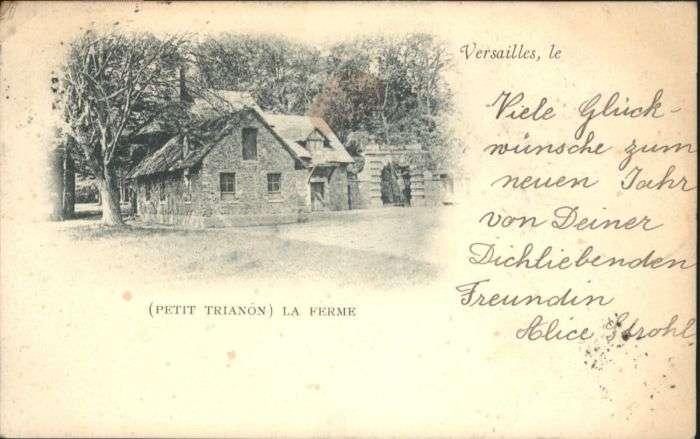 Versailles, le
Viele Glück-
wünsche zum
neuen Jahr
von Deiner
Dichliebenden
Freundin
Alice Strohl
(PETIT TRIANON) LA FERME